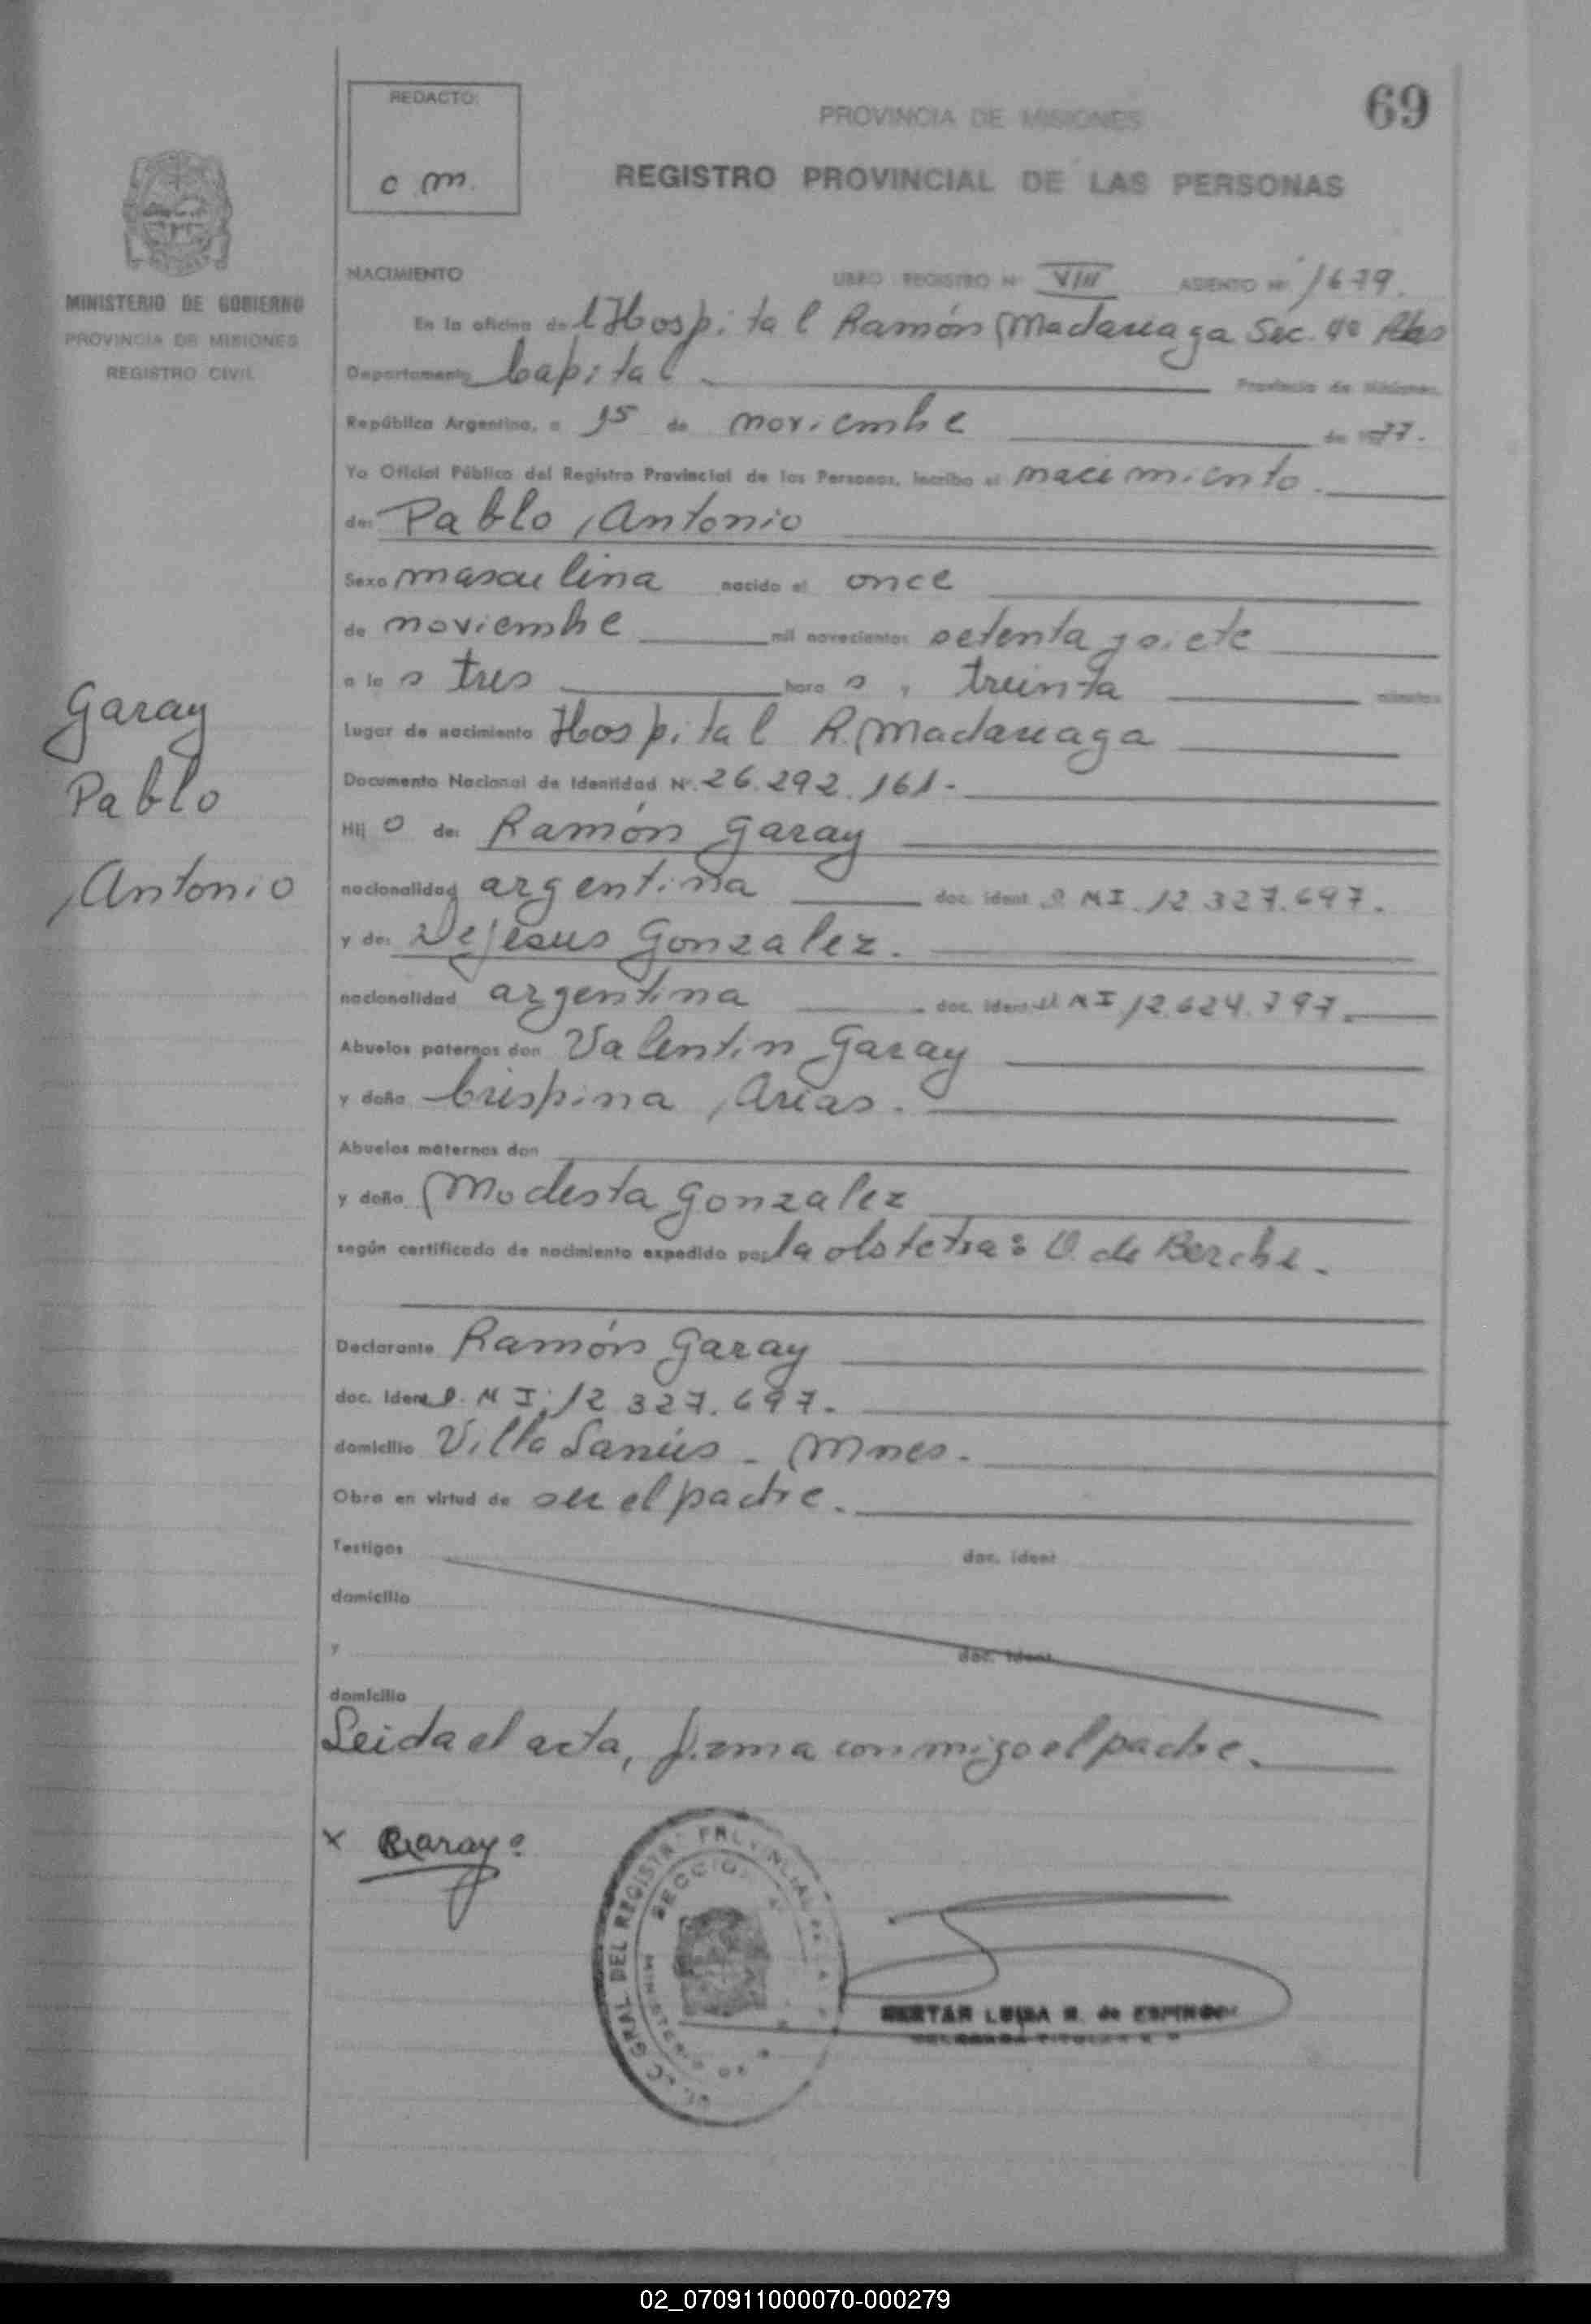 REDACTO:
c m.
PROVINCIA DE MISIONES
69
REGISTRO PROVINCIAL DE LAS PERSONAS
MINISTERIO DE GOBIERNO
PROVINCIA DE MISIONES
REGISTRO CIVIL
Garay
Pablo
Antonio
NACIMIENTO LIBRO REGISTRO Nº VIII ASIENTO Nº 1679.
En la oficina del Hospital Ramón Madariaga Sec. 4º
Departamento Capital Provincia de Misiones,
República Argentina, a 15 de noviembre de 1977.
Yo Oficial Público del Registro Provincial de las Personas, inscribo el nacimiento.
de: Pablo Antonio
Sexo masculino nacido el once
de noviembre mil novecientos setenta y siete
a las tres horas, treinta minutos
Lugar de nacimiento Hospital R. Madariaga
Documento Nacional de Identidad Nº. 26.292.161.-
Hijo de: Ramón Garay
nacionalidad argentina doc. ident. D M I. 12.327.697.
y de: De Jesus Gonzalez.
nacionalidad argentina doc. ident. M I 12.624.797.
Abuelos paternos don Valentin Garay
y doña Crispina Arias.
Abuelos maternos don
y doña Modesta Gonzalez
según certificado de nacimiento expedido por la obstetra: O. de Berche.
Declarante Ramón Garay
doc. Ident D. M I. 12 327.697.
domicilio Villa Lanús - Mnes.
Obra en virtud de ser el padre.
Testigos doc. ident
domicilio
y doc. ident.
domicilio
Leida el acta, firma conmigo el padre.
x RGaray
GRAL. DEL REGISTRO PROVINCIAL DE LAS
SECCION 4
MINISTERIO
LUISA R. de ESPINDO
02_070911000070-000279